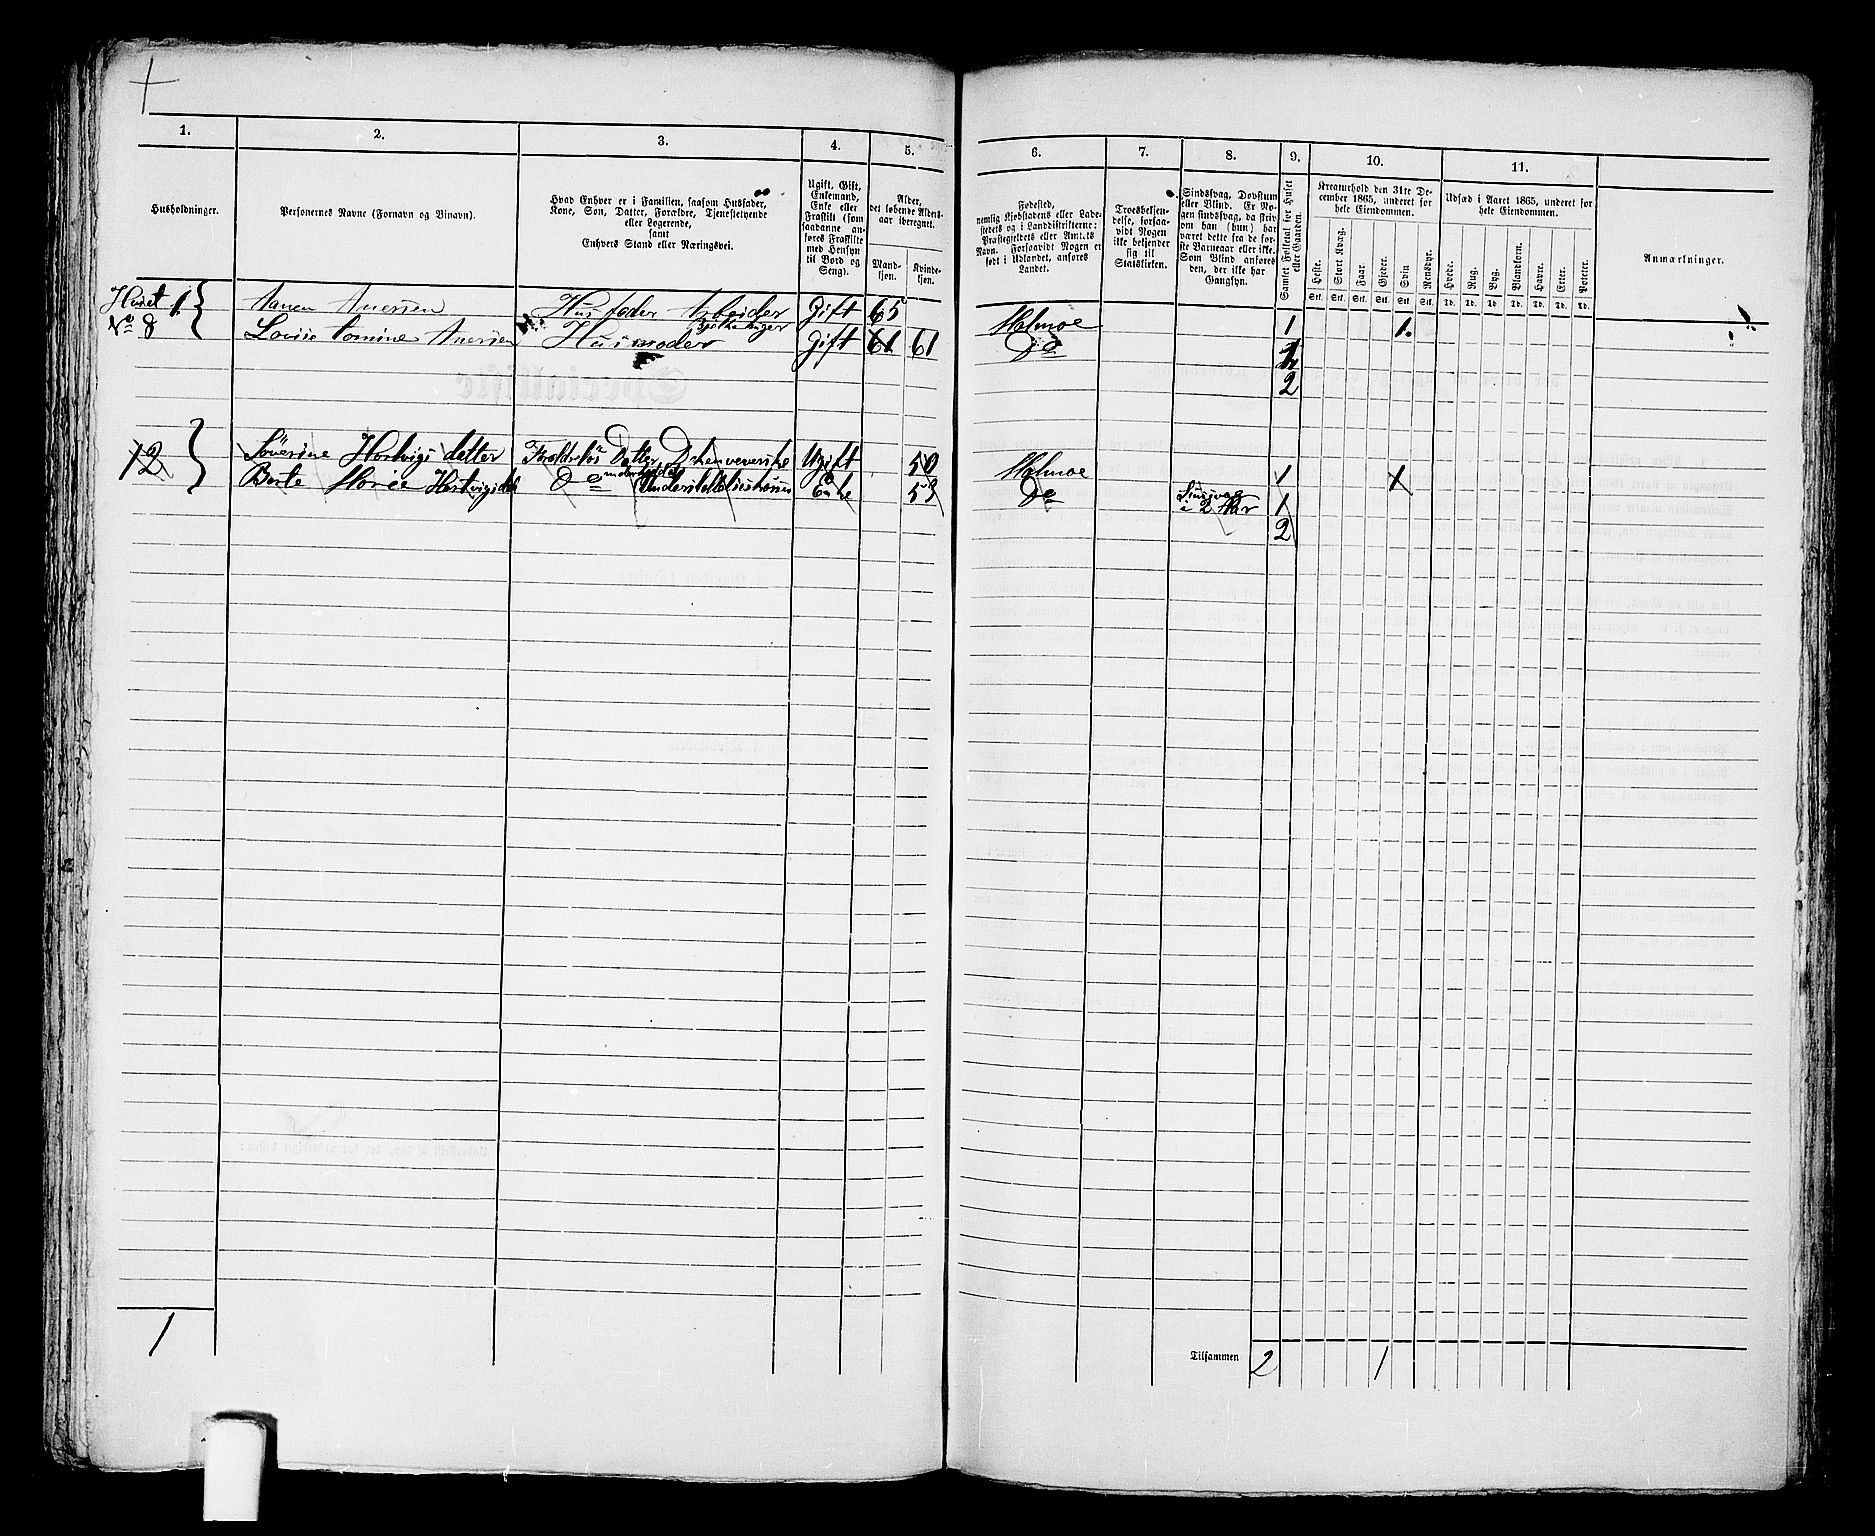 1.
2.
3.
4.
5.
6.
7.
8.
9.
10.
11.
Husholdninger.
Personernes Navne (Fornavn og Binavn).
Hvad Enhver er i Familien, saasom Husfader,
Kone, Son, Datter, Forældre, Tjenestetyende
eller Logerende,
samt
Enhvers Stand eller Næringsvei.
Ugift, Gift,
Enkemand,
Enke eller
Fraskilt (som
saadanne an-
føres Fraskilte
med Hensyn
til Bord og
Seng).
Alder,
det løbende Alders-
aar iberegnet.
Mand-
kjøn.
Kvinde-
kjøn.
Fødested,
nemlig Kjøbstadens eller Lade-
stedets og i Landdistrikterne:
Præstegjeldets eller Amtets
Navn. Forsaavidt Nogen er
født i Udlandet, anføres
Landet.
Troesbekjen-
delse, forsaa-
vidt Nogen
ikke bekjender
sig til
Statskirken.
Sindssvag, Døvstum
eller Blind. Er No-
gen sindssvag, da skriv
om han (hun) har
været dette fra de for-
ste Barneaar eller ikke.
Som Blind anføres
den, der ikke har
Gangsyn.
Samlet Folketal for Huset
eller Gaarden.
Kreaturhold den 31te De-
cember 1865, underet for
hele Eiendommen.
Heste.
Stort Kvæg.
Faar.
Gjeder.
Svin
Rensdyr.
Stk. Stk. Stk. Stk. Stk. Stk.
Udsæd i Aaret 1865, underet for
hele Eiendommen.
Hvede.
Rug.
Byg.
Blandkorn.
Havre.
Erter.
Poteter.
Td. Td. Td. Td. Td. Td. Td.
Anmærkninger.
Huset 1 Husfader Arbeider Gift 65 Holmoe 1 1.
No 8 Husmoder Gift 61 61 Do 1
2
2 Datter Ugift 50 Holmoe 1 1
Berte Do Enke 53 Do i 2 Aar 1
2
1
Tilsammen 2 1